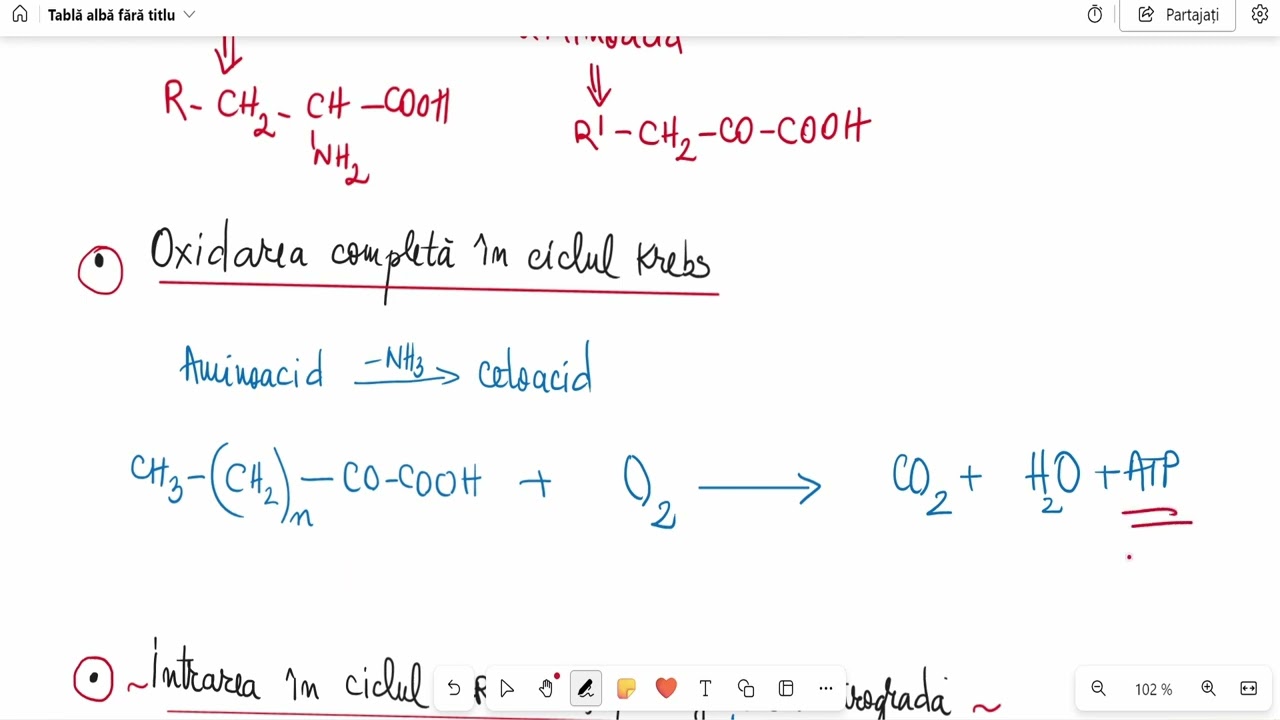 Tablă albă fără titlu
Partajați
R-CH2-CH-COOH
NH2
R'-CH2-CO-COOH
Oxidarea completă în ciclul Krebs
Aminoacid -NH3 → cetoacid
CH3-(CH2)n-CO-COOH + O2 → CO2 + H2O + ATP
~Intrarea în ciclul
~
102 %